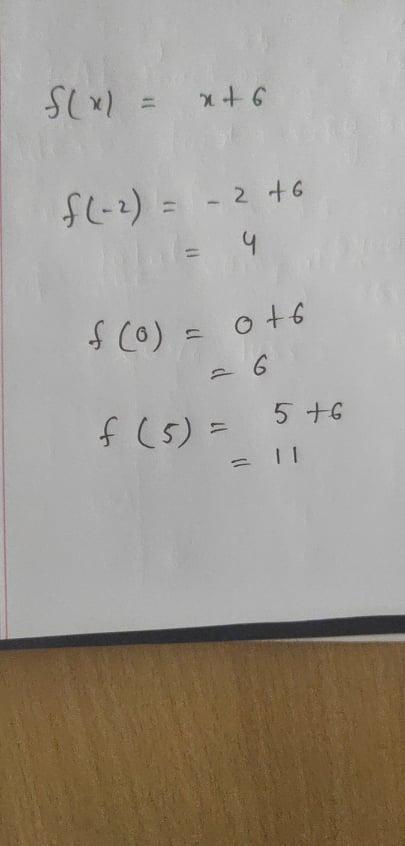 f(x) = x + 6
f(-2) = - 2 + 6
= 4
f (0) = 0 + 6
= 6
f (5) = 5 + 6
= 11